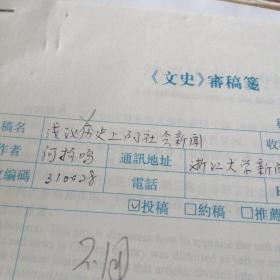 《文史》審稿箋
稿名 浅议历史上的社会新闻
作者 何扬鸣 通訊地址 浙江大学新闻
編碼 310028 電話
☑投稿 □約稿 □推薦
不用